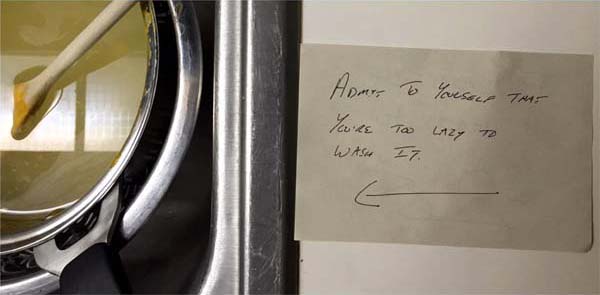 ADMIT TO YOURSELF THAT
YOU'RE TOO LAZY TO
WASH IT.